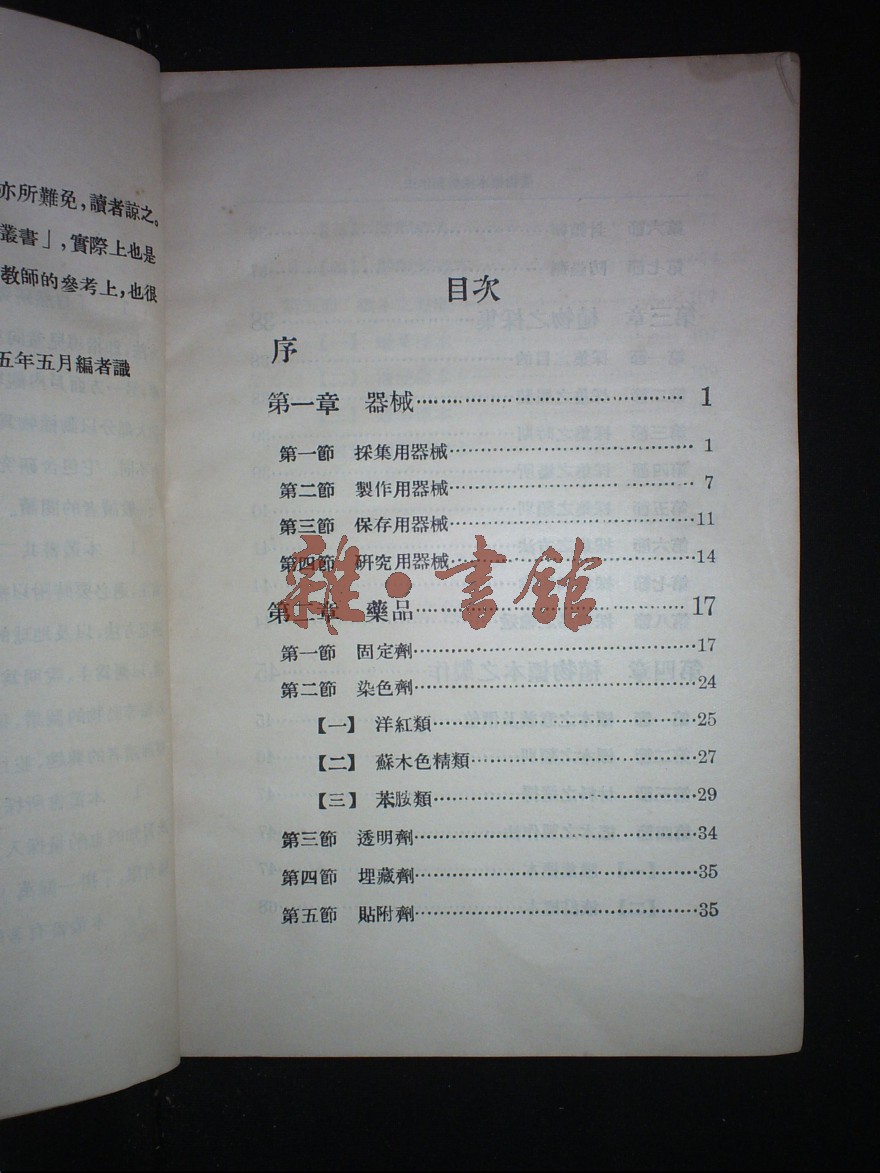 亦所難免，讀者諒之。
叢書」，實際上也是
教師的參考上，也很
五年五月編者識
目次
序
第一章 器械………………………………1
第一節 採集用器械………………………………1
第二節 製作用器械………………………………7
第三節 保存用器械………………………………11
第四節 研究用器械………………………………14
雜·書館
第二章 藥品………………………………17
第一節 固定劑………………………………17
第二節 染色劑………………………………24
【一】 洋紅類………………………………25
【二】 蘇木色精類………………………………27
【三】 苯胺類………………………………29
第三節 透明劑………………………………34
第四節 埋藏劑………………………………35
第五節 貼附劑………………………………35